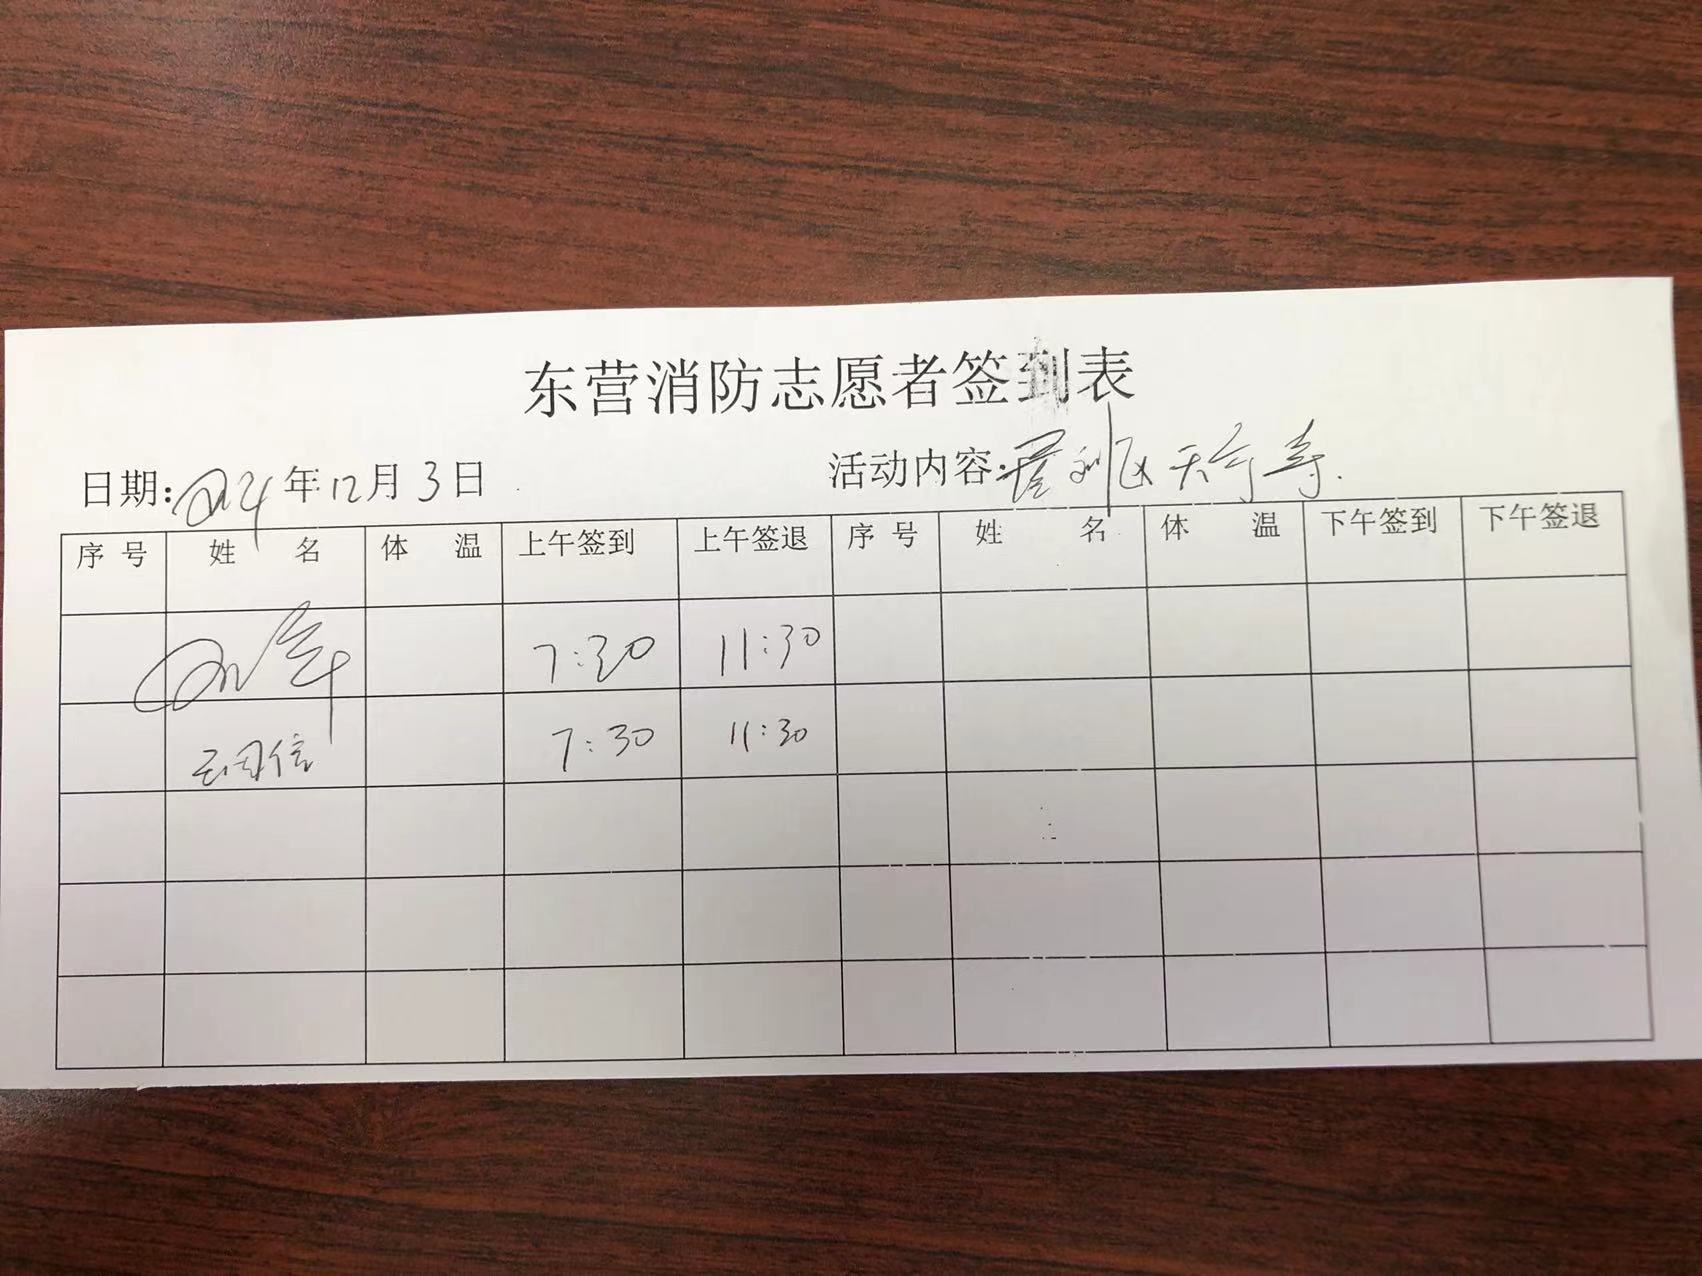 东营消防志愿者签到表
日期:2024年12月3日 活动内容: 利区天宁寺.
序号 姓名 体温 上午签到 上午签退 序号 姓名 体温 下午签到 下午签退
7:30 11:30
信 7:30 11:30